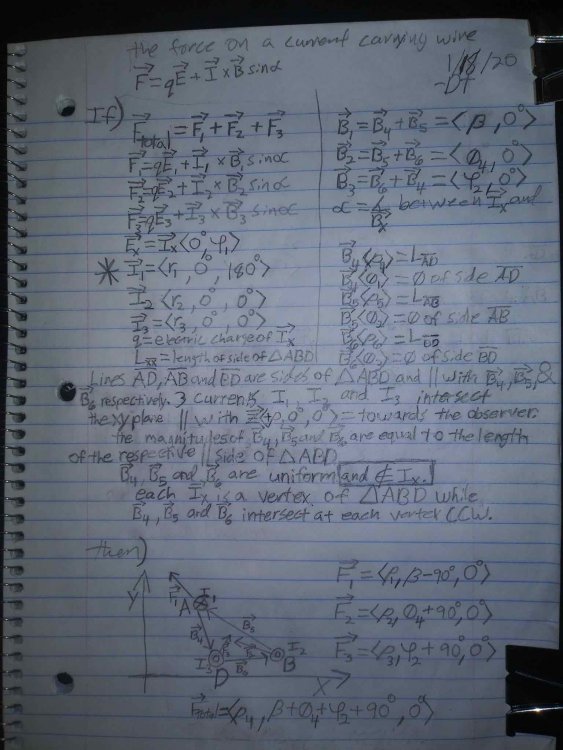 the force on a current carrying wire
F⃗ = qE⃗ + I⃗ × B⃗ sinα
1/18/20
-DT
If)
F⃗total = F⃗1 + F⃗2 + F⃗3
F⃗1 = qE⃗1 + I⃗1 × B⃗1 sinα
F⃗2 = qE⃗2 + I⃗2 × B⃗2 sinα
F⃗3 = qE⃗3 + I⃗3 × B⃗3 sinα
E⃗x = I⃗x⟨0°, φ1⟩
* I⃗1 = ⟨r1, 0°, 180°⟩
I⃗2 ⟨r2, 0°, 0°⟩
I⃗3 = ⟨r3, 0°, 0°⟩
q = electric charge of I⃗x
L = length of side of △ABD
B⃗1 = B⃗4 + B⃗5 = ⟨β, 0°⟩
B⃗2 = B⃗5 + B⃗6 = ⟨Φ4, 0°⟩
B⃗3 = B⃗6 + B⃗4 = ⟨φ2, 0°⟩
α = ∠ between I⃗x and
B⃗x
B⃗4⟨ρ4⟩ = L AD
B⃗4⟨Φ1⟩ = Φ of side AD
B⃗5⟨ρ5⟩ = L AB
B⃗5⟨Φ2⟩ = Φ of side AB
B⃗6⟨ρ6⟩ = L BD
B⃗6⟨Φ⟩ = Φ of side BD
Lines AD, AB and BD are sides of △ABD and || with B⃗4, B⃗5, &
B⃗6 respectively. 3 currents I1, I2 and I3 intersect
the xy plane || with z⃗⟨+ρ, 0°, 0°⟩ = towards the observer.
the magnitudes of B⃗4, B⃗5 and B⃗6 are equal to the length
of the respective || side of △ABD
B⃗4, B⃗5 and B⃗6 are uniform and ∉ I⃗x.
each I⃗x is a vertex of △ABD while
B⃗4, B⃗5 and B⃗6 intersect at each vertex CCW.
then)
F⃗1 = ⟨ρ1, β-90°, 0°⟩
F⃗2 = ⟨ρ2, Φ4+90°, 0°⟩
F⃗3 = ⟨ρ3, φ2+90°, 0°⟩
Y
F⃗1
A
I1
B⃗4
B⃗5
I2
I3
B⃗6
B
D
X
F⃗total = ⟨ρ4, β+Φ4+φ2+90°, 0°⟩